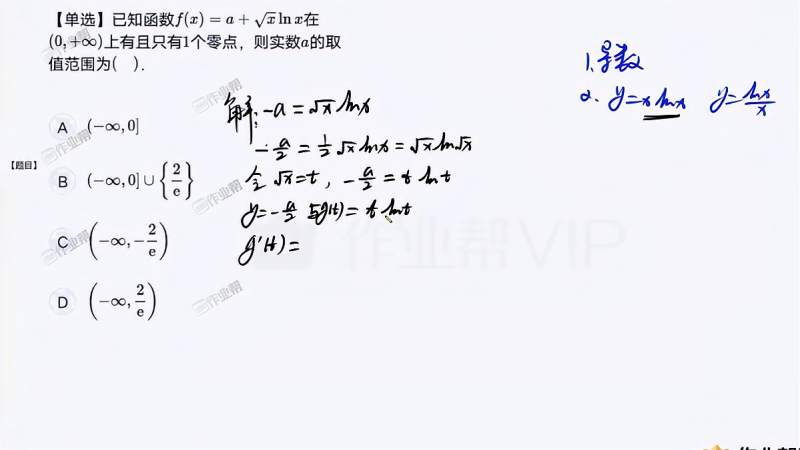 【单选】已知函数f(x) = a + √x ln x在
(0, +∞)上有且只有1个零点，则实数a的取
值范围为( ).
【题目】
A (−∞, 0]
B (−∞, 0] ∪ {2/e}
C (−∞, −2/e)
D (−∞, 2/e)
解: −a = √x lnx
−a/2 = 1/2 √x lnx = √x ln√x
令 √x = t , −a/2 = t lnt
y = −a/2 与g(t) = t lnt
g'(t) =
1. 导数
2. y = x lnx y = lnx/x
作业帮VIP
作业帮
作业帮
作业帮
作业帮
作业帮
作业帮
作业帮